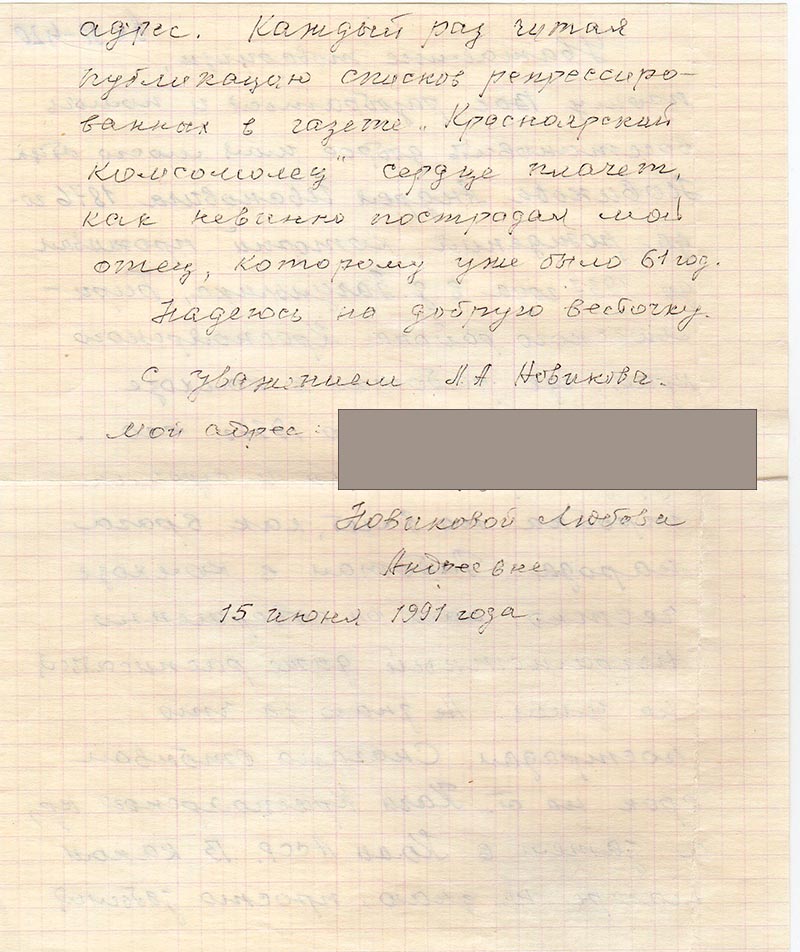 адрес. Каждый раз читая
публикацию списков репрессиро-
ванных в газете „Красноярский
комсомолец" сердце плачет,
как невинно пострадал мой
отец, которому уже было 61 год.
Надеюсь на добрую весточку.
С уважением Л.А Новикова.
Мой адрес:
Новиковой Любови
Андреевне
15 июня 1991 года.